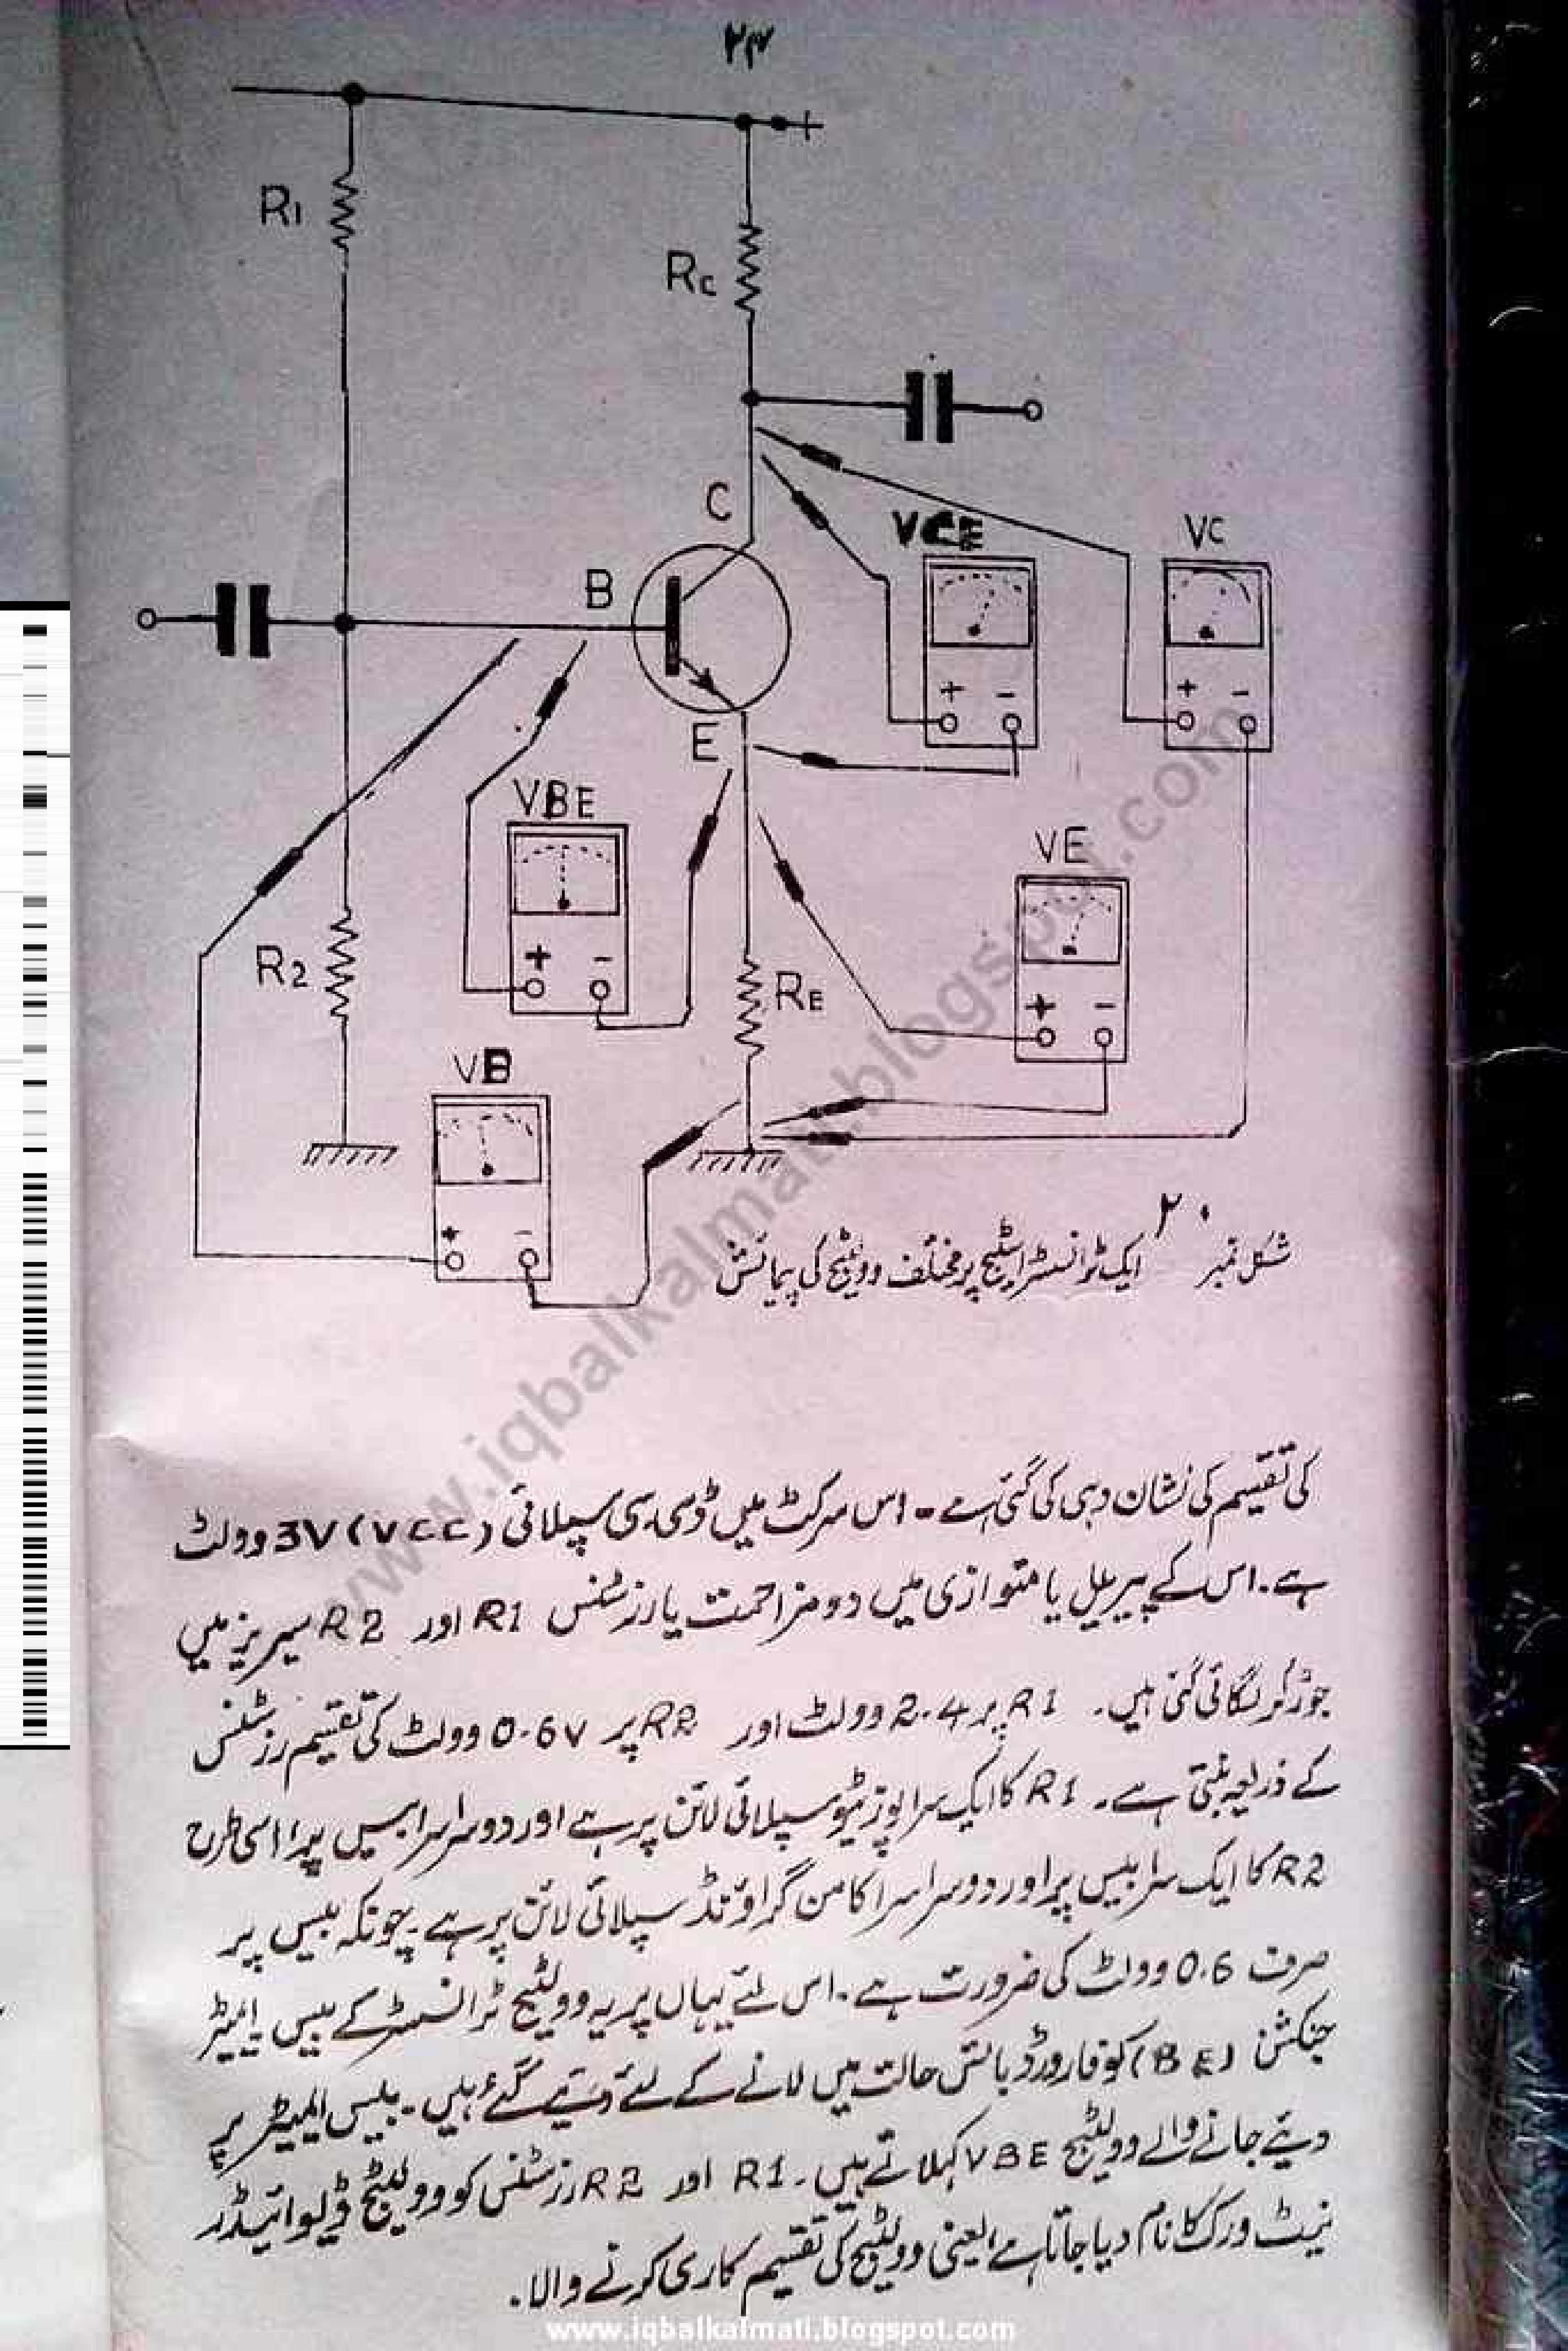 ۲۴
+
R1
RC
C
VCE
VC
B
+ -
+ -
E
VBE
VE
R2
+ -
RE
+ -
VB
+ -
شکل نمبر ۲۰ ایک ٹرانسسٹر اسٹیج پر مختلف وولٹیج کی پیمائش
کی تقسیم کی نشان دہی کی گئی ہے۔ اس سرکٹ میں ڈی سی سپلائی (VCC) 3V وولٹ
ہے۔ اس کے پیریلل یا متوازی میں دو مزاحمت یا رزسٹنس R1 اور R2 سیریز میں
جوڑ کر لگائی گئی ہیں۔ R1 پر 2.4 وولٹ اور R2 پر 0.6V وولٹ کی تقسیم رزسٹنس
کے ذریعہ بنتی ہے۔ R1 کا ایک سرا پوزیٹیو سپلائی لائن پر ہے اور دوسرا سرا بیس پر اسی طرح
R2 کا ایک سرا بیس پر اور دوسرا سرا کامن گراؤنڈ سپلائی لائن پر ہے۔ چونکہ بیس پر
صرف 0.6 وولٹ کی ضرورت ہے۔ اس لئے یہاں پر یہ وولٹیج ٹرانسسٹر کے بیس۔ ایمیٹر
جنکشن (BE) کو فارورڈ بائس حالت میں لانے کے لئے دیئے گئے ہیں۔ بیس ایمیٹر پر
دیئے جانے والے وولٹیج VBE کہلاتے ہیں۔ R1 اور R2 رزسٹنس کو وولٹیج ڈیوائیڈر
نیٹ ورک کا نام دیا جاتا ہے یعنی وولٹیج کی تقسیم کاری کرنے والا۔
www.iqbalkalmati.blogspot.com
www.iqbalkalmati.blogspot.com